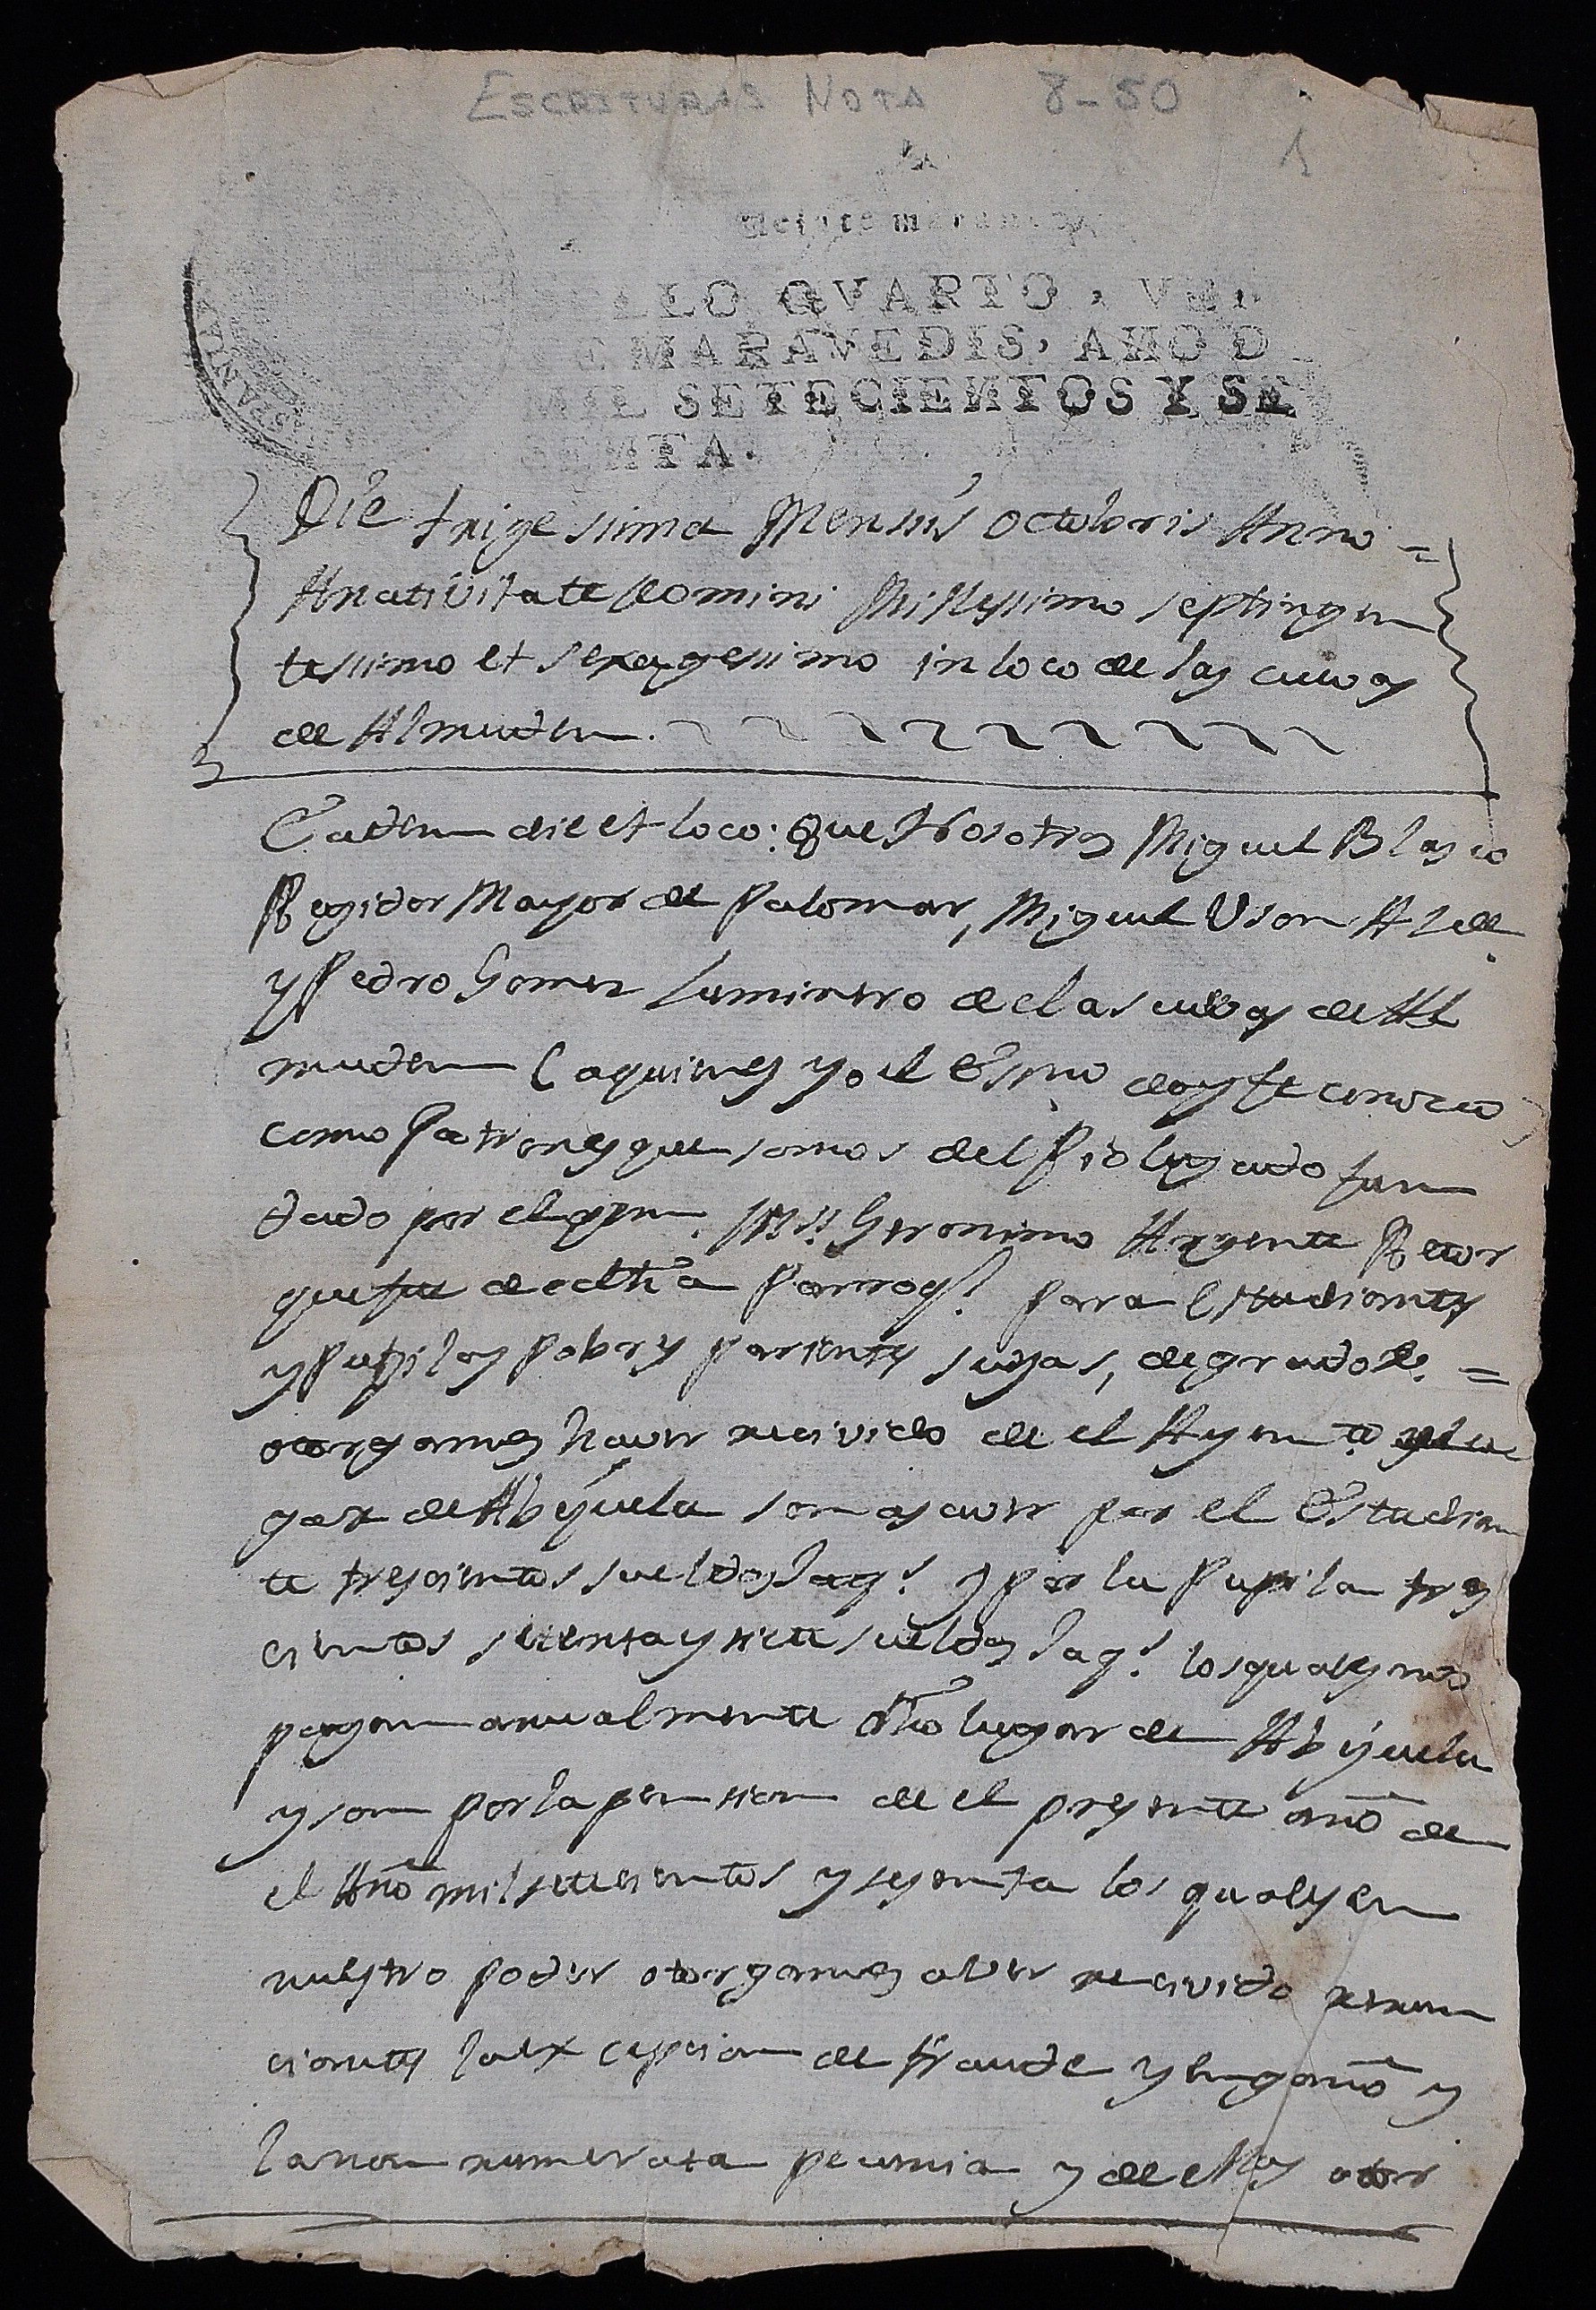 Escrituras Nota 8-50
1
Veinte maravedis
SELLO QVARTO, VEIN
TE MARAVEDIS, AÑO D
MIL SETECIENTOS Y SE
SENTA.
Die trigessima Mensis octobris Anno =
Anativitate Domini Millessimo septingen
tessimo et sexagessimo in loco de las cuevas
de Almuden.
Eadem die et loco: Que Nosotros Miguel Blasco
Regidor Mayor de Palomar, Miguel Uson Alcde.
y Pedro Gomez Luminero de las cuevas de Al
muden (aquienes yo el Essno. doy fe conozco)
como Patrones que somos del Pio legado fun
dado por el qqm. Mn. Geronimo Argente Retor
que fue de dcha Parroql. para Estudiantes
y Pupilas Pobres Parientes suyas, de grado &. =
otorgamos haver recivido de el Ayunto. y lu
gar de Abejuela son asaver por el Estudian
te trescientos sueldos Jaqs. y por la Pupila tres
cientos setenta y siete sueldos Jaqs. los quales nos
pagan anualmente dicho lugar de Abejuela
y son por la pension de el presente año de
el Año mil setecientos y sesenta los quales en
nuestro poder otorgamos aver recivido renun
ciantes la excepcion de fraude y engaño y
la non numerata pecunia y de ellos otor